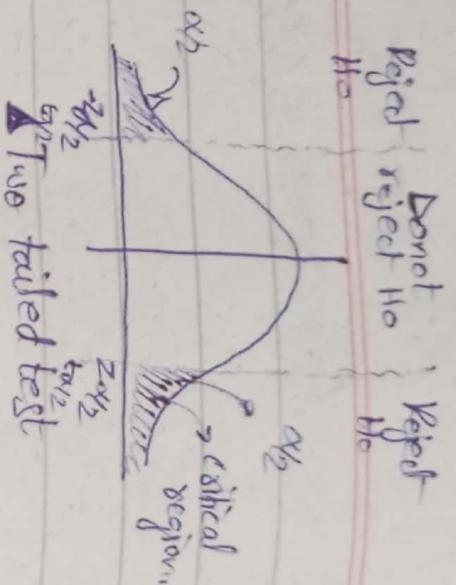 Reject Do not Reject
Ho reject Ho Ho
α/2 α/2
→ critical
region
-Zα/2 Zα/2
tα/2 tα/2
Two tailed test